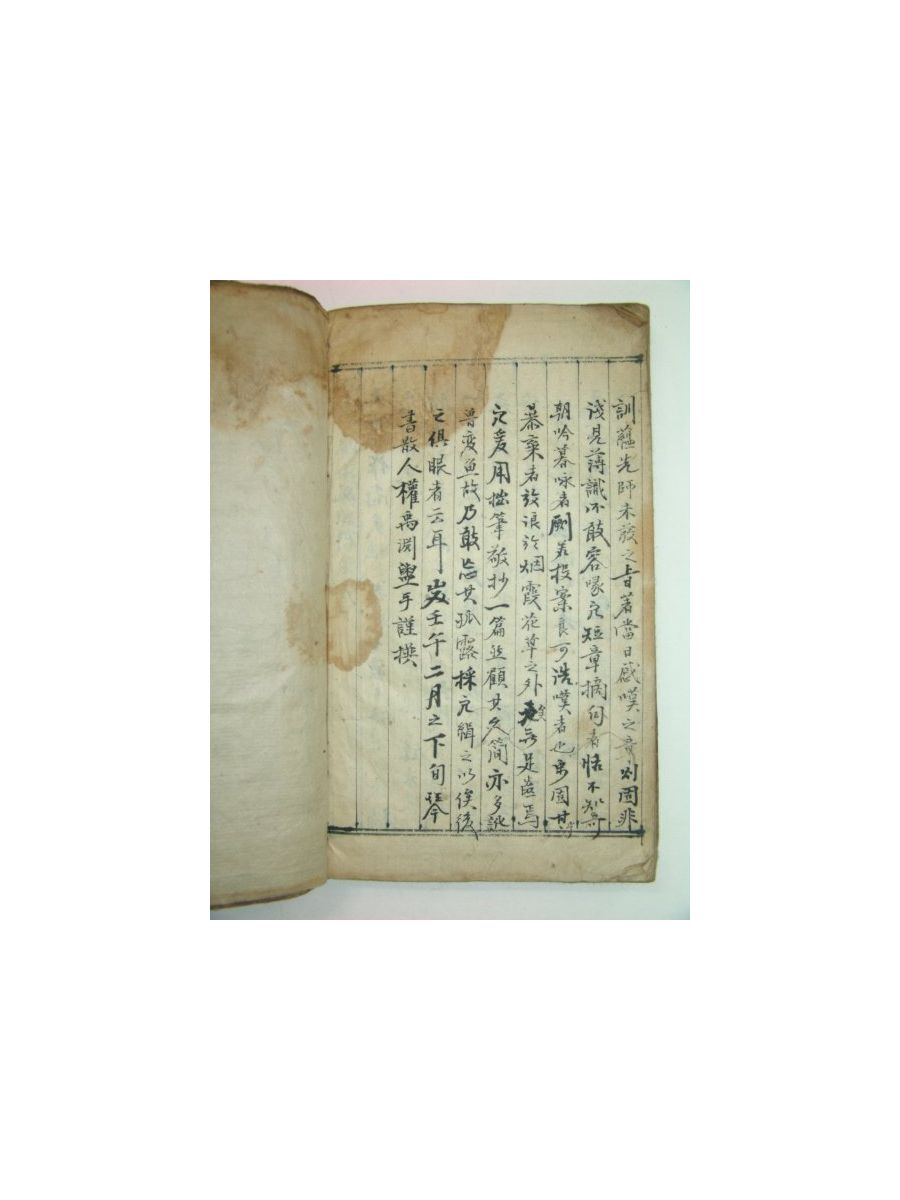 訓蘊先師未發之旨著當日感嘆之章則固非
淺見薄識不敢容喙而短章摘句者恬不知
朝吟暮咏者劂若投案良可浩嘆者也固其
慕棄者放浪於烟霞花草之外無足齒焉
爰用拙筆敬抄一篇然顧其文簡亦多訛
魯變魚故乃敢忘其孤露採而緝之以俟後
之俱眼者云耳 歲壬午二月之下旬琴
書散人權禹淵盥手謹撰